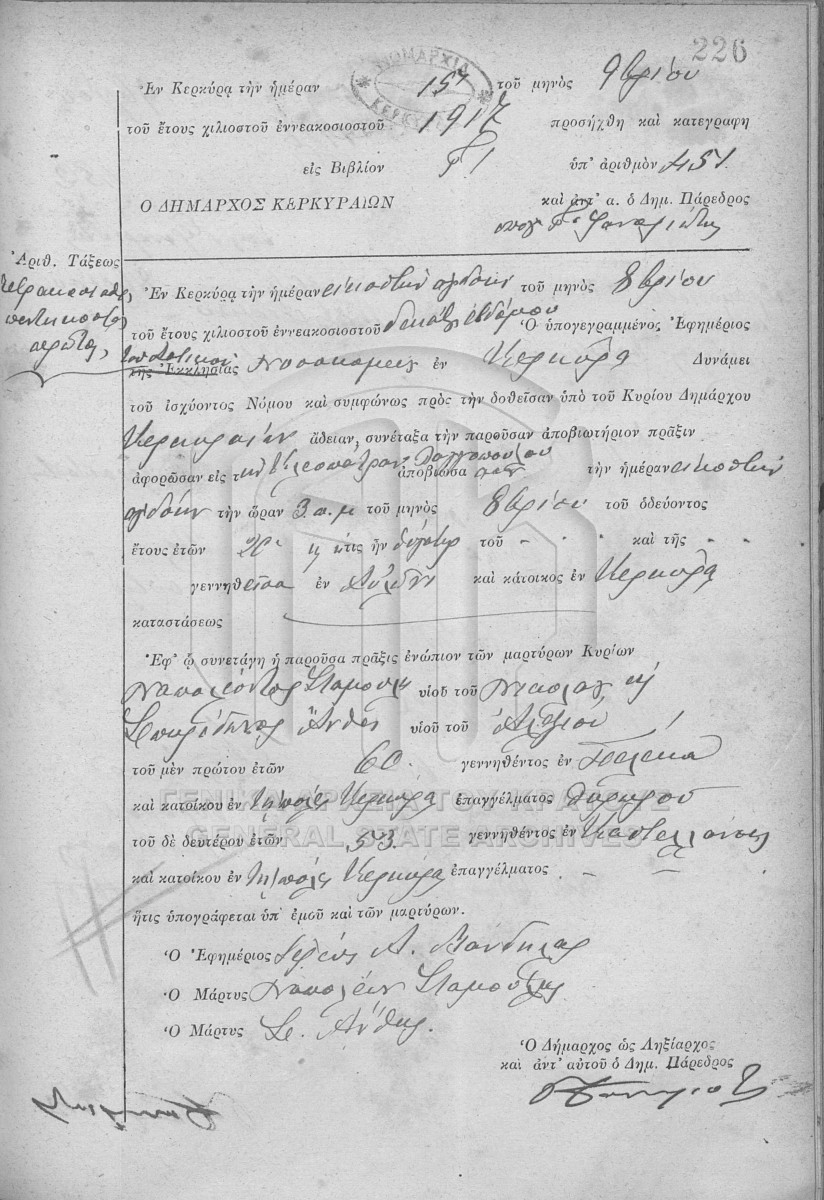 226
ΝΟΜΑΡΧΙΑ
ΚΕΡΚΥΡΑΣ
Ἐν Κερκύρᾳ τὴν ἡμέραν 15ην τοῦ μηνὸς 9βρίου
τοῦ ἔτους χιλιοστοῦ ἐννεακοσιοστοῦ 1917 προσήχθη καὶ κατεγραφη
εἰς Βιβλίον Γ1 ὑπ' ἀριθμὸν 451
Ο ΔΗΜΑΡΧΟΣ ΚΕΡΚΥΡΑΙΩΝ καὶ ἀντ' α. ὁ Δημ. Πάρεδρος
Ἀριθ. Τάξεως
τετρακοσιοστὸς
πεντηκοστὸς
πρῶτος
Ἐν Κερκύρᾳ τὴν ἡμέραν εἰκοστὴν ὀγδόην τοῦ μηνὸς 8βρίου
τοῦ ἔτους χιλιοστοῦ ἐννεακοσιοστοῦ δεκάτου ἑβδόμου Ὁ ὑπογεγραμμένος Ἐφημέριος
τῆς Ἐκκλησίας τοῦ Νοσοκομείου ἐν Κερκύρᾳ Δυνάμει
τοῦ ἰσχύοντος Νόμου καὶ συμφώνως πρὸς τὴν δοθεῖσαν ὑπὸ τοῦ Κυρίου Δημάρχου
Κερκυραίων ἄδειαν, συνέταξα τὴν παροῦσαν ἀποβιωτήριον πρᾶξιν
ἀφορῶσαν εἰς τὴν Κλεοπάτραν ἀποβιώσασαν τὴν ἡμέραν εἰκοστὴν
ὀγδόην τὴν ὥραν 3 π.μ τοῦ μηνὸς 8βρίου τοῦ ὁδεύοντος
ἔτους ἐτῶν ἥτις ἦν θυγάτηρ τοῦ - - καὶ τῆς - -
γεννηθεῖσα ἐν καὶ κάτοικος ἐν Κερκύρᾳ
καταστάσεως
Ἐφ' ᾧ συνετάγη ἡ παροῦσα πρᾶξις ἐνώπιον τῶν μαρτύρων Κυρίων
Ναπολέοντος Σταμούλη υἱοῦ τοῦ Νικολάου καὶ
Σπυρίδωνος Ἄνθη υἱοῦ τοῦ Ἀλεξίου
τοῦ μὲν πρώτου ἐτῶν 60 γεννηθέντος ἐν Πέλεκα
καὶ κατοίκου ἐν τῇ πόλει Κερκύρας ἐπαγγέλματος
ΓΕΝΙΚΑ ΑΡΧΕΙΑ ΤΟΥ ΚΡΑΤΟΥΣ
GENERAL STATE ARCHIVES
τοῦ δὲ δευτέρου ἐτῶν 53 γεννηθέντος ἐν Καστελλάνους
καὶ κατοίκου ἐν τῇ πόλει Κερκύρας ἐπαγγέλματος - -
ἥτις ὑπογράφεται ὑπ' ἐμοῦ καὶ τῶν μαρτύρων.
Ὁ Ἐφημέριος Ἱερεὺς Α.
Ὁ Μάρτυς Ναπολέων Σταμούλης
Ὁ Μάρτυς Σ. Ἄνθης
Ὁ Δήμαρχος ὡς Ληξίαρχος
καὶ ἀντ' αὐτοῦ ὁ Δημ. Πάρεδρος